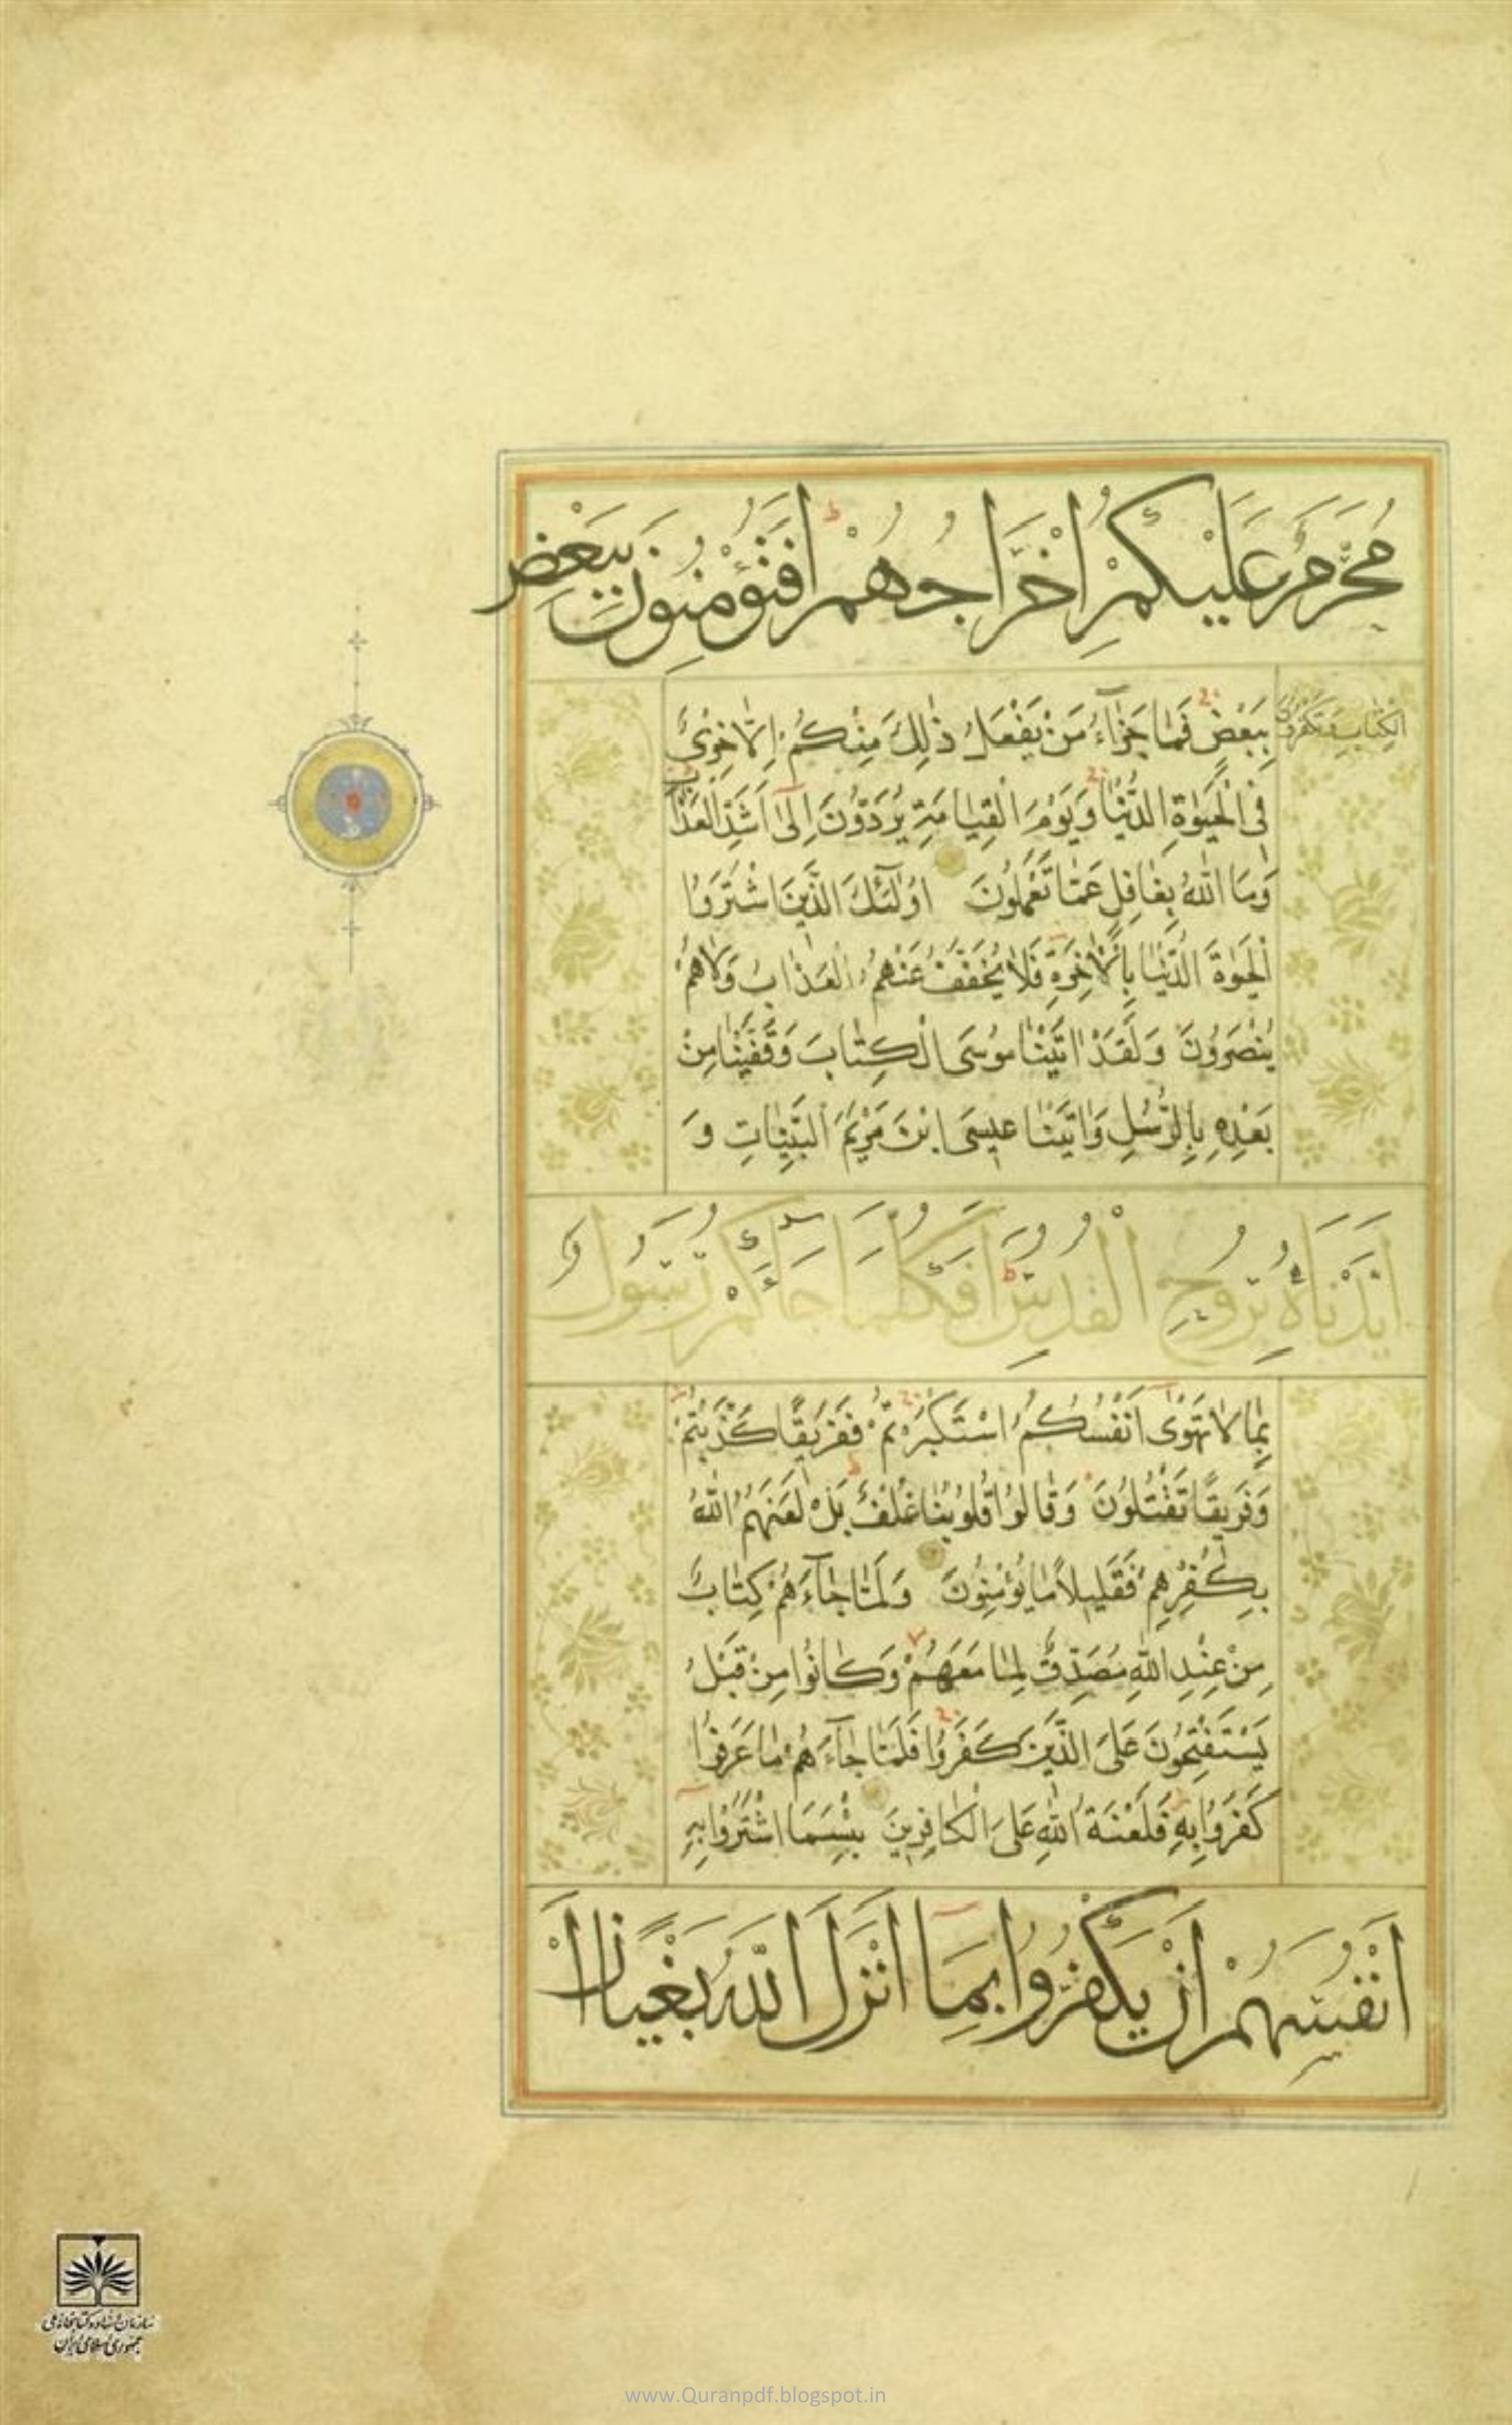 مُحَرَّمٌ عَلَيْكُمْ اِخْرَاجُهُمْ اَفَتُؤْمِنُونَ بِبَعْضِ
الْكِتَابِ وَتَكْفُرُونَ
بِبَعْضٍ فَمَا جَزَآءُ مَنْ يَفْعَلُ ذٰلِكَ مِنْكُمْ اِلَّا خِزْىٌ
فِى الْحَيٰوةِ الدُّنْيَا وَيَوْمَ الْقِيَامَةِ يُرَدُّونَ اِلٰٓى اَشَدِّ الْعَذَابِ
وَمَا اللّٰهُ بِغَافِلٍ عَمَّا تَعْمَلُونَ اُولٰٓئِكَ الَّذِينَ اشْتَرَوُا
الْحَيٰوةَ الدُّنْيَا بِالْاٰخِرَةِ فَلَا يُخَفَّفُ عَنْهُمُ الْعَذَابُ وَلَا هُمْ
يُنْصَرُونَ وَلَقَدْ اٰتَيْنَا مُوسَى الْكِتَابَ وَقَفَّيْنَا مِنْ
بَعْدِهِ بِالرُّسُلِ وَاٰتَيْنَا عِيسَى ابْنَ مَرْيَمَ الْبَيِّنَاتِ وَ
اَيَّدْنَاهُ بِرُوحِ الْقُدُسِ اَفَكُلَّمَا جَآءَكُمْ رَسُولٌ
بِمَا لَا تَهْوٰٓى اَنْفُسُكُمُ اسْتَكْبَرْتُمْ فَفَرِيقًا كَذَّبْتُمْ
وَفَرِيقًا تَقْتُلُونَ وَقَالُوا قُلُوبُنَا غُلْفٌ بَلْ لَعَنَهُمُ اللّٰهُ
بِكُفْرِهِمْ فَقَلِيلًا مَا يُؤْمِنُونَ وَلَمَّا جَآءَهُمْ كِتَابٌ
مِنْ عِنْدِ اللّٰهِ مُصَدِّقٌ لِمَا مَعَهُمْ وَكَانُوا مِنْ قَبْلُ
يَسْتَفْتِحُونَ عَلَى الَّذِينَ كَفَرُوا فَلَمَّا جَآءَهُمْ مَا عَرَفُوا
كَفَرُوا بِهِ فَلَعْنَةُ اللّٰهِ عَلَى الْكَافِرِينَ بِئْسَمَا اشْتَرَوْا بِهِ
اَنْفُسَهُمْ اَنْ يَكْفُرُوا بِمَا اَنْزَلَ اللّٰهُ بَغْيًا اَنْ
سازمان اسناد و کتابخانه ملی
جمهوری اسلامی ایران
www.Quranpdf.blogspot.in